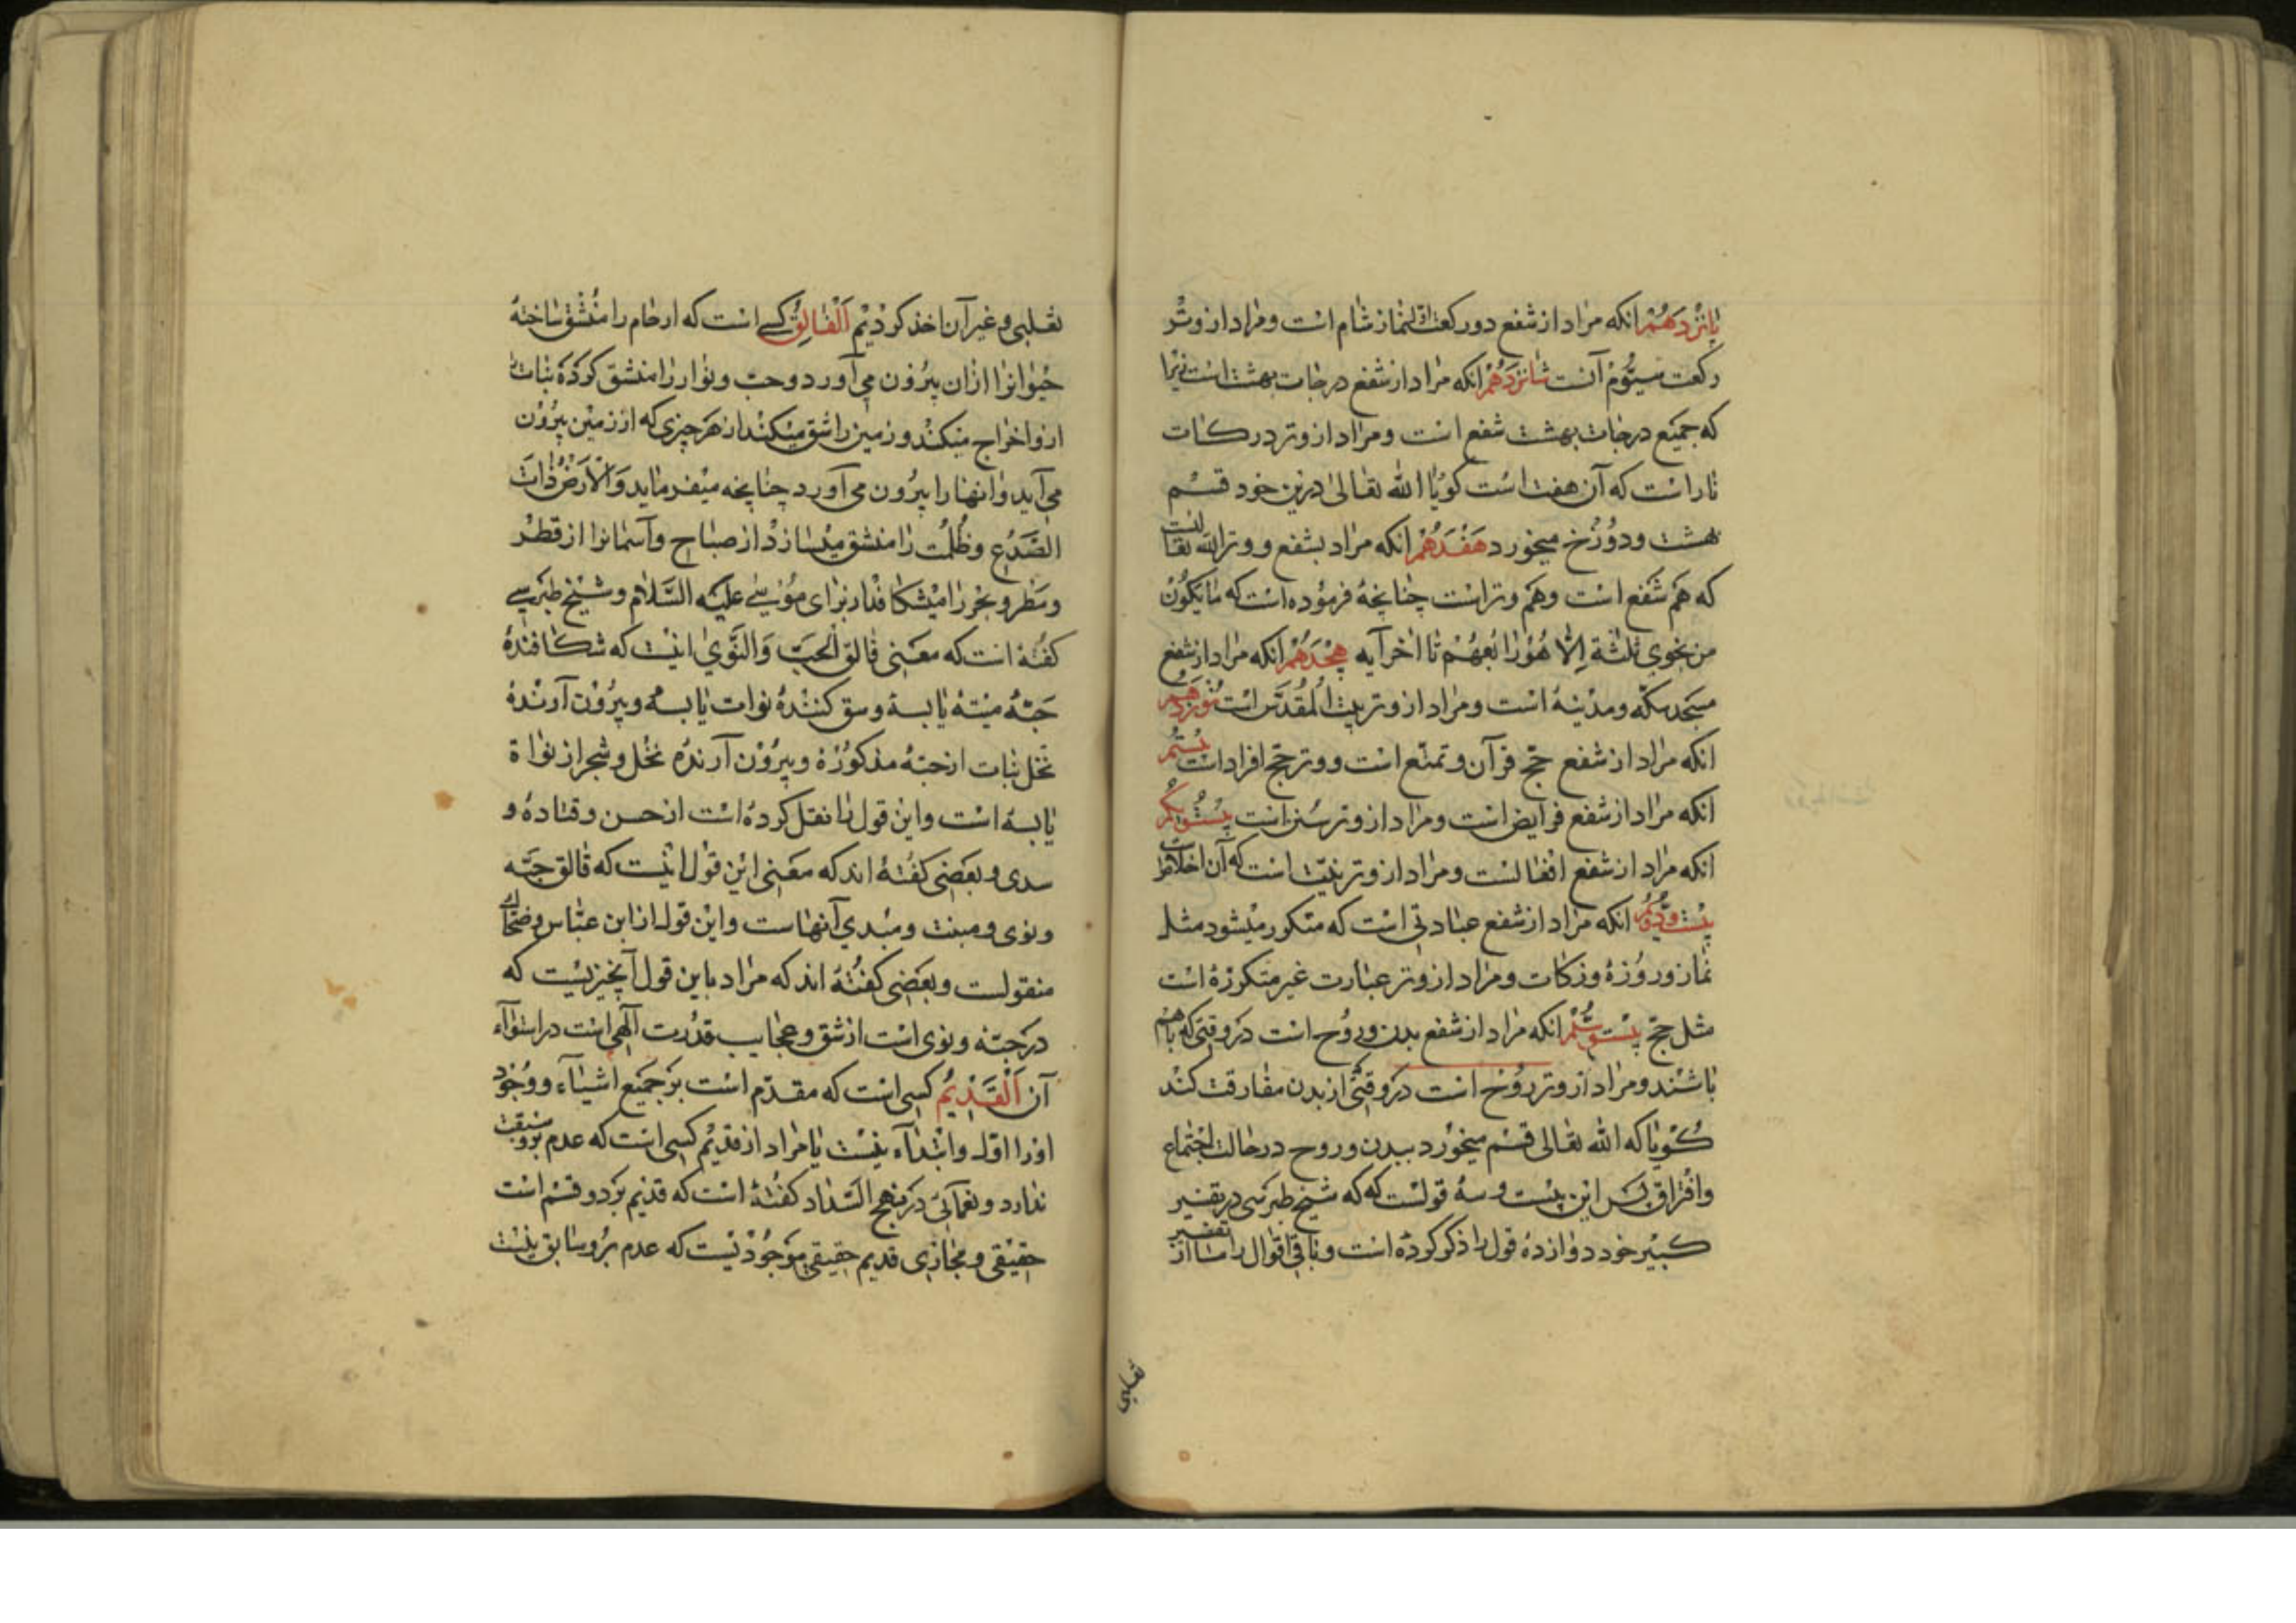 پانزدهم انکه مراد از شفع دو رکعت اول نماز شام است و مراد از وتر
رکعت سیوم آنست شانزدهم انکه مراد از شفع درجات بهشت است زیرا
که جمیع درجات بهشت شفع است و مراد از وتر درکات
نار است که آن هفت است کویا الله تعالی درین خود قسم
بهشت و دوزخ میخورد هفدهم انکه مراد بشفع و وتر الله تعالی است
که هم شفع است و هم وتر است چنانچه فرموده است که ما یکون
من نجوی ثلثة الا هو رابعهم تا اخر آیه هجدهم انکه مراد از شفع
مسجد مکه و مدینه است و مراد از وتر بیت المقدس است نوزدهم
انکه مراد از شفع حج قرآن و تمتع است و وتر حج افراد است بیستم
انکه مراد از شفع فرایض است و مراد از وتر سنن است بیست و یکم
انکه مراد از شفع افعالست و مراد از وتر نیت است که آن اخلاص است
بیست و دویم انکه مراد از شفع عباداتی است که متکرر میشود مثل
نماز و روزه و زکات و مراد از وتر عبارت غیر متکرره است
مثل حج بیست و سیم انکه مراد از شفع بدن و روح است در وقتی که باهم
باشند و مراد از وتر روح است در وقتی از بدن مفارقت کند
کویا که الله تعالی قسم میخورد ببدن و روح در حالت اجتماع
و افتراق پس این بیست و سه قولست که که شیخ طبرسی در تفسیر
کبیر خود دوازده قول را ذکر کرده است و باقی اقوال را ما از تفسیر
ثعلبی
ثعلبی و غیر آن اخذ کردیم الفالق کسی است که ارحام را منشق ساخته
حیوانرا ازان بیرون می آورد و حب و نوا را منشق کرده نبات
ازو اخراج میکند و زمین را شق میکند از هر چیزی که از زمین بیرون
می آید و انها را بیرون می آورد چنانچه میفرماید والارض ذات
الصدع و ظلمت را منشق میسازد از صباح و آسمانرا از قطر
و مطر و بحر را میشکافد از برای موسی علیه السلام و شیخ طبرسی
کفته است که معنی فالق الحب والنوی اینست که شکافنده
حبه میته یابسه و شق کننده نوات یابسه و بیرون آرنده
نخل نبات از حبه مذکوره و بیرون آرنده نخل و شجر از نواة
یابسه است و این قول را نقل کرده است از حسن و قتاده و
سدی و بعضی کفته اند که معنی این قول اینست که فالق حبه
و نوی و مبنت و مبدی آنهاست و این قول از ابن عباس و ضحاک
منقولست و بعضی کفته اند که مراد باین قول آنچیزیست که
در حبه و نوی است از شق و عجایب قدرت آلهی است در استوآء
آن القدیم کسی است که مقدم است بر جمیع اشیاء و وجود
اورا اول و ابتدآء نیست یا مراد از قدیم کسی است که عدم برو سبقت
ندارد و نعمانی در منهج السداد کفته است که قدیم بر دو قسم است
حقیقی و مجازی قدیم حقیقی موجودیست که عدم برو سابق نیست